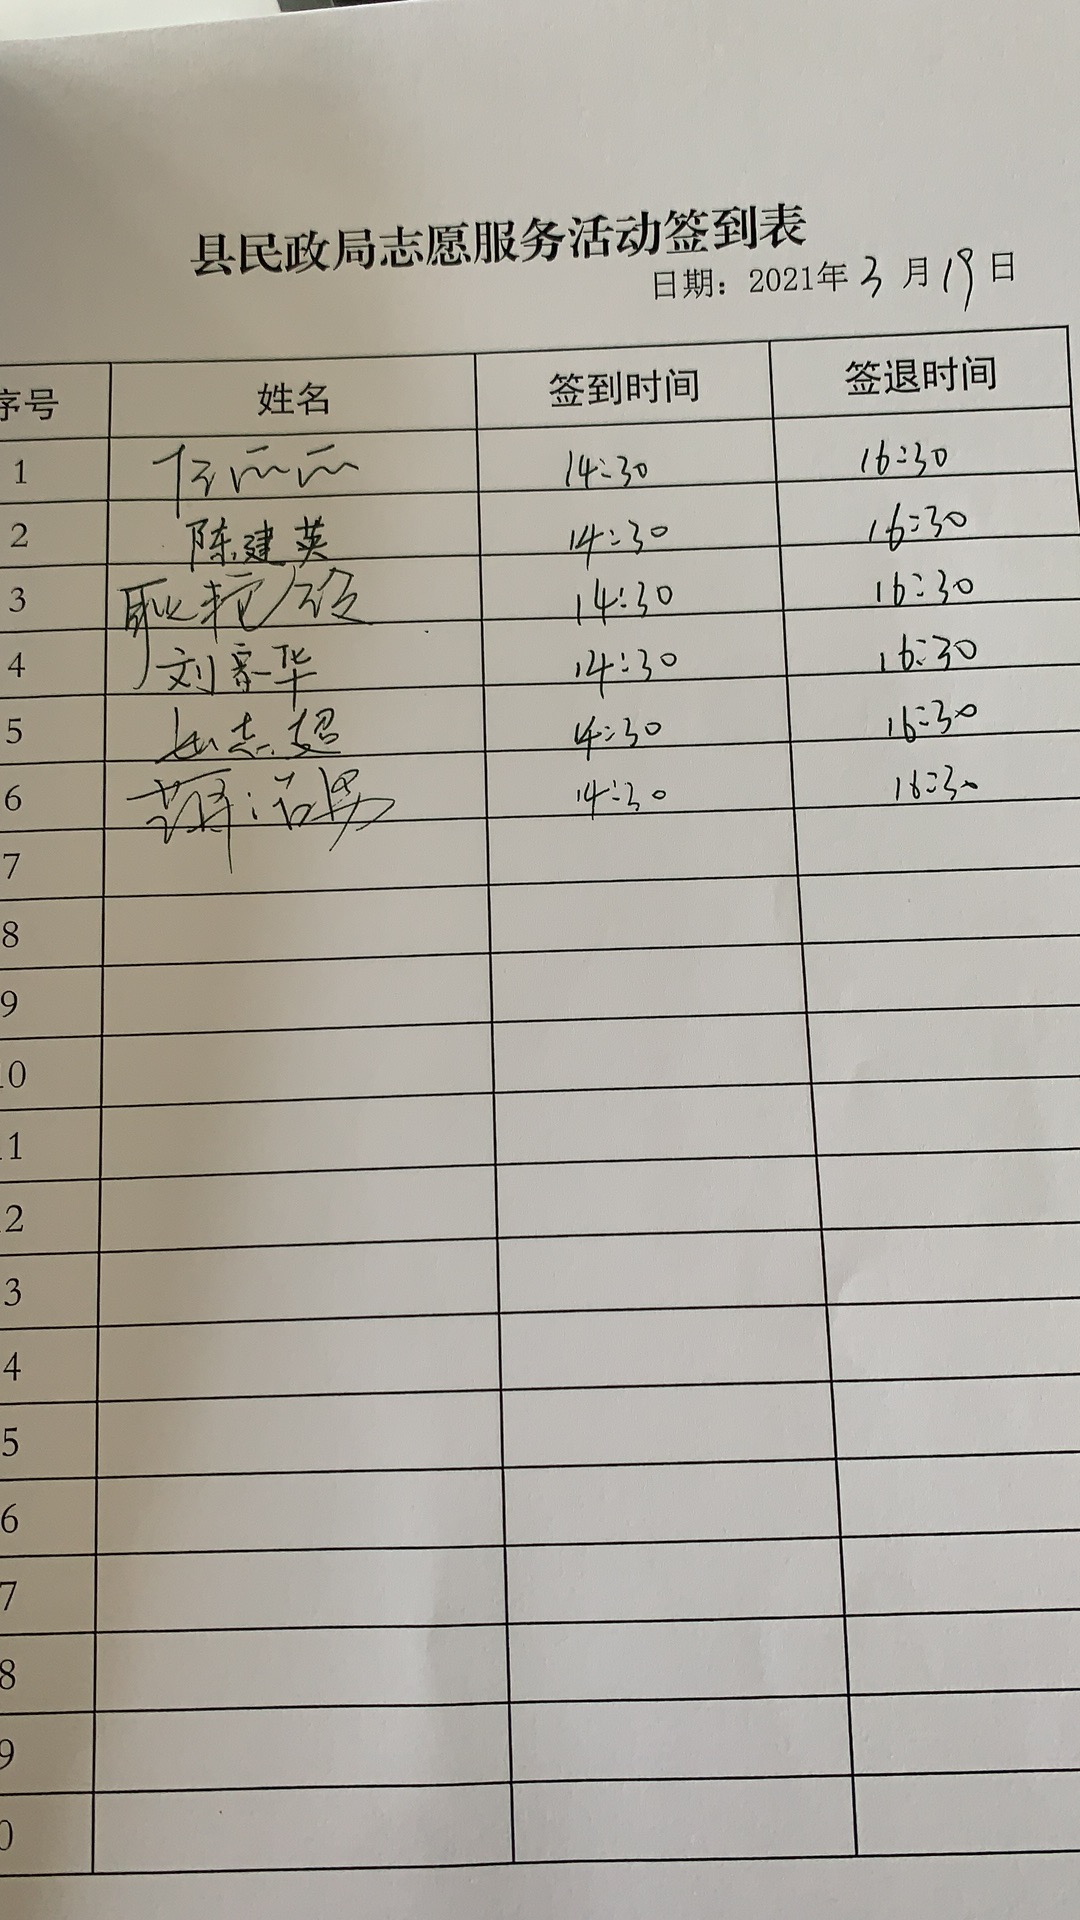 县民政局志愿服务活动签到表
日期：2021年3月19日
序号 姓名 签到时间 签退时间
1 14:30 16:30
2 陈建英 14:30 16:30
3 14:30 16:30
4 刘家华 14:30 16:30
5 志超 14:30 16:30
6 14:30 16:30
7
8
9
10
11
12
13
14
15
16
17
18
19
20